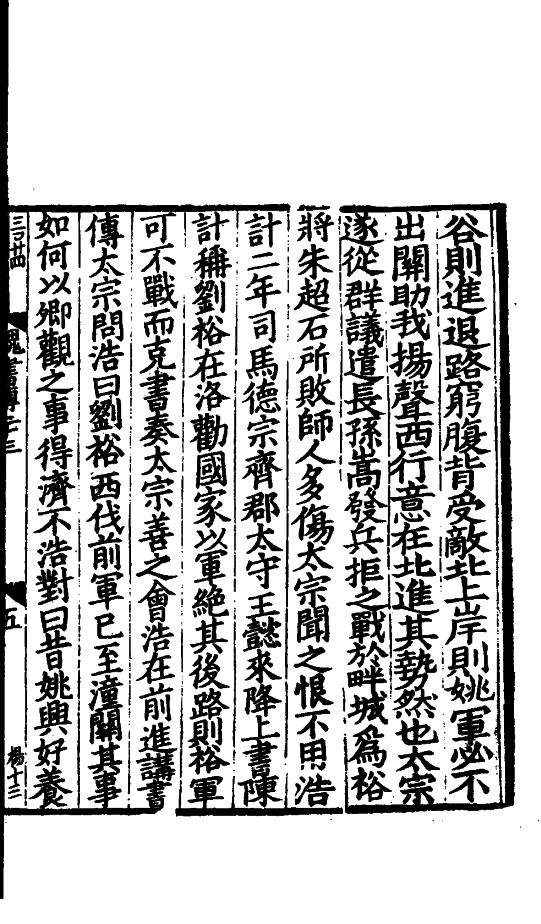 谷則進退路窮腹背受敵北上岸則姚軍必不
出關助我揚聲西行意在北進其勢然也太宗
遂從群議遣長孫嵩發兵拒之戰於畔城爲裕
將朱超石所敗師人多傷太宗聞之恨不用浩
計二年司馬德宗齊郡太守王懿來降上書陳
計稱劉裕在洛勸國家以軍絕其後路則裕軍
可不戰而克書奏太宗善之會浩在前進講書
傳太宗問浩曰劉裕西伐前軍已至潼關其事
如何以卿觀之事得濟不浩對曰昔姚興好養
魏書傳廿三
五
楊十三